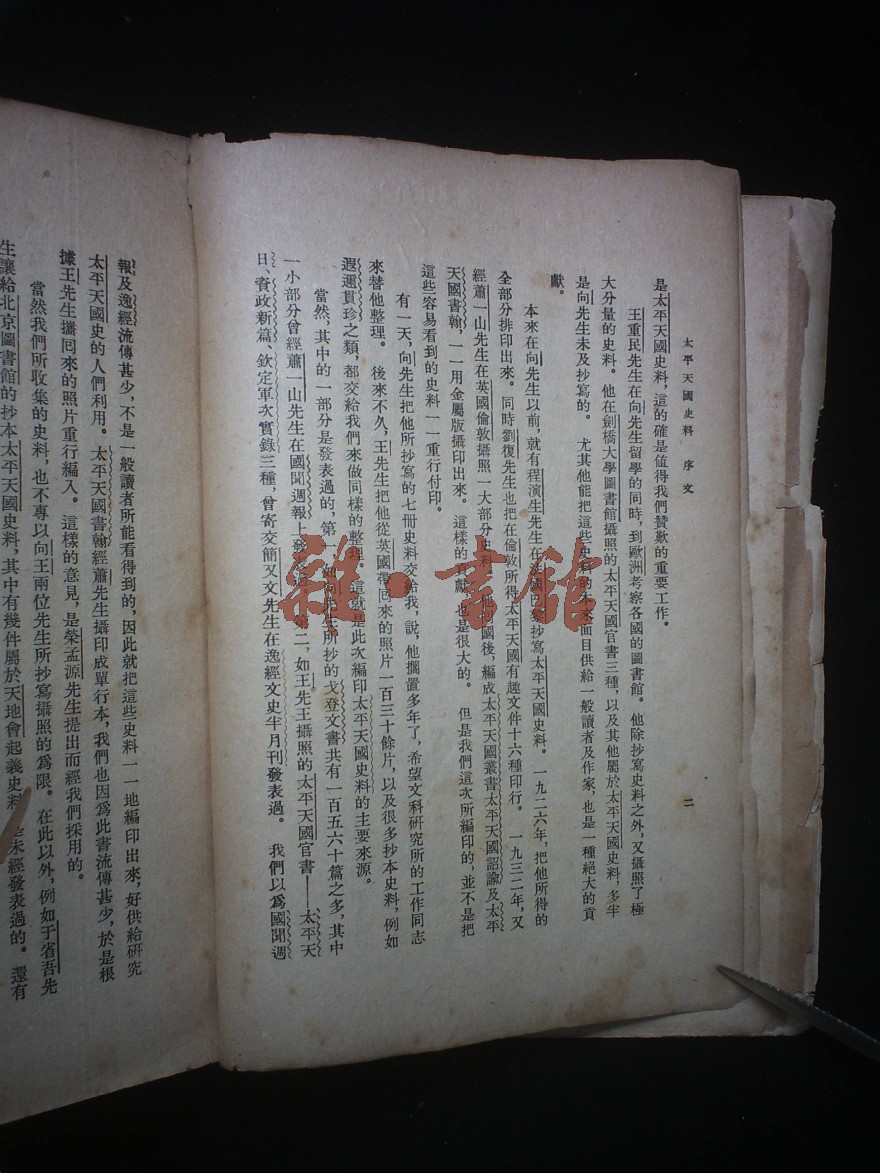 太平天國史料 序文
二
是太平天國史料，這的確是値得我們贊歎的重要工作。
王重民先生在向先生留學的同時，到歐洲考察各國的圖書館。他除抄寫史料之外，又攝照了極
大分量的史料。他在劍橋大學圖書館攝照的太平天國官書三種，以及其他屬於太平天國史料，多半
是向先生未及抄寫的。尤其他能把這些史料的本來面目供給一般讀者及作家，也是一種絕大的貢
獻。
本來在向先生以前，就有程演生先生在法國巴黎抄寫太平天國史料。一九二六年，把他所得的
全部分排印出來。同時劉復先生也把在倫敦所得太平天國有趣文件十六種印行。一九三二年，又
經蕭一山先生在英國倫敦攝照一大部分史料，國後，編成太平天國叢書太平天國詔諭及太平
天國書翰，一一用金屬版攝印出來。這樣的貢獻，也是很大的。但是我們這次所編印的，並不是把
這些容易看到的史料一一重行付印。
有一天，向先生把他所抄寫的七冊史料交給我，說，他擱置多年了，希望文科硏究所的工作同志
來替他整理。後來不久，王先生把他從英國帶回來的照片一百三十餘片，以及很多抄本史料，例如
遐邇貫珍之類，都交給我們來做同樣的整理，這就是此次編印太平天國史料的主要來源。
當然，其中的一部分是發表過的，第一，如向先生所抄的戈登文書共有一百五六十篇之多，其中
一小部分曾經蕭一山先生在國聞週報上發表過。第二，如王先生攝照的太平天國官書——太平天
日、資政新篇、欽定軍次實錄三種，曾寄交簡又文先生在逸經文史半月刊發表過。我們以爲國聞週
報及逸經流傳甚少，不是一般讀者所能看得到的，因此就把這些史料一一地編印出來，好供給硏究
太平天國史的人們利用。太平天國書翰經蕭先生攝印成單行本，我們也因爲此書流傳甚少，於是根
據王先生攝回來的照片重行編入。這樣的意見，是榮孟源先生提出而經我們採用的。
當然我們所收集的史料，也不專以向王兩位先生所抄寫攝照的爲限。在此以外，例如于省吾先
生讓給北京圖書館的抄本太平天國史料，其中有幾件屬於天地會起義史料，是未經發表過的。還有
雜·書館